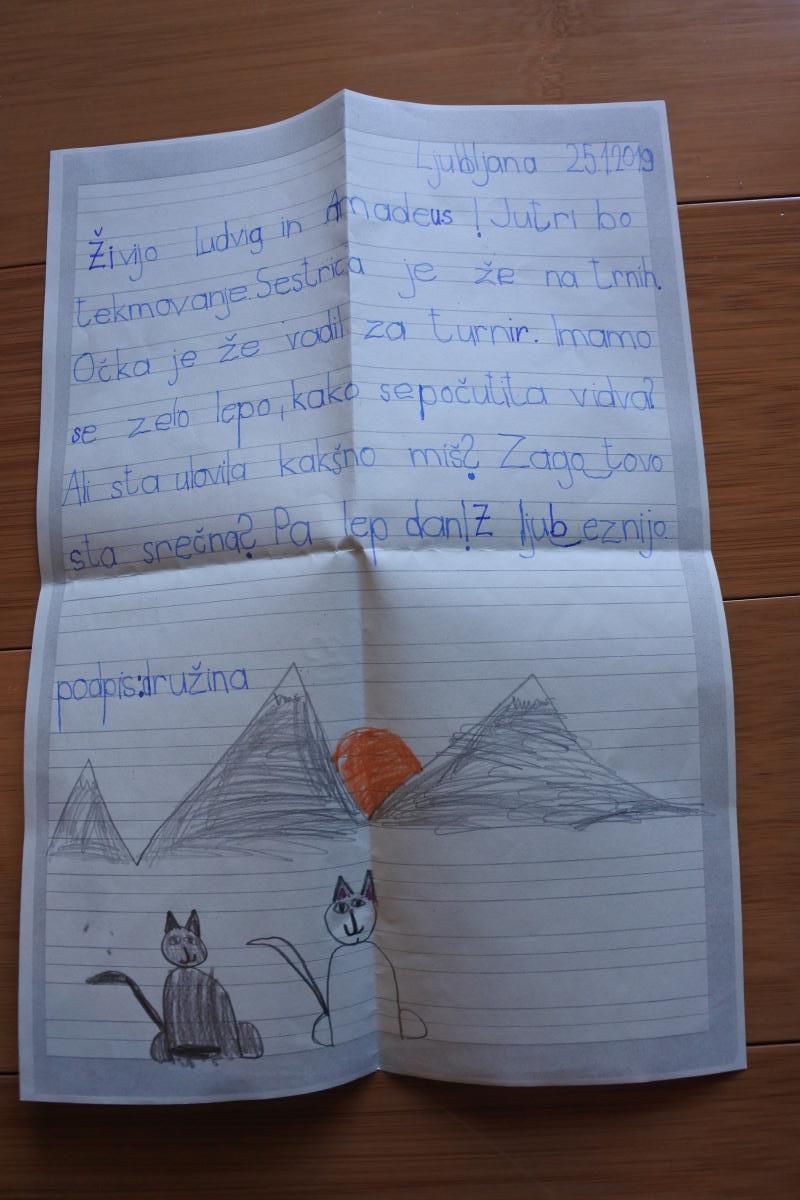 Ljubljana 25.1.2019
Živijo ludvig in Amadeus! Jutri bo
tekmovanje. Sestrica je že na trnih.
Očka je že vadil za turnir. Imamo
se zelo lepo, kako sepočutita vidva?
Ali sta ulovila kakšno miš? Zago tovo
sta srečna? Pa lep dan! Z ljub eznijo
podpis:družina